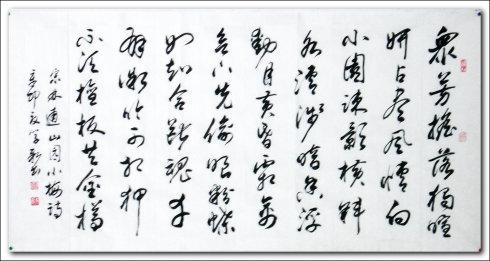 衆芳摇落獨暄
妍占盡風情向
小園疎影横斜
水清淺暗香浮
動月黄昏霜禽
欲下先偷眼粉蝶
如知合斷魂幸
有微吟可相狎
不須檀板共金樽
宋林逋山園小梅詩
辛卯